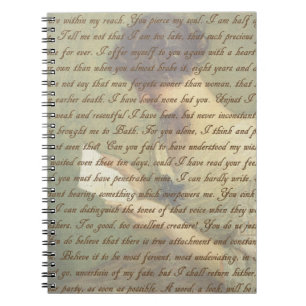 e within my reach. You pierce my soul. I am half a
Tell me not that I am too late, that such precious
e for ever. I offer myself to you again with a heart
own than when you almost broke it, eight years and a
t say that man forgets sooner than woman, that
earlier death. I have loved none but you. Unjust I
k and resentful I have been, but never inconstant
brought me to Bath. For you alone, I think and p
t seen this? Can you fail to have understood my wis
waited even these ten days, could I have read your fee
you must have penetrated mine. I can hardly write. I
hearing something which overpowers me. You sink
I can distinguish the tones of that voice when they w
thers. Too good, too excellent creature! You do us jus
do believe that there is true attachment and constan
Believe it to be most fervent, most undeviating, in
t go, uncertain of my fate; but I shall return hither,
party, as soon as possible. A word, a look, will be